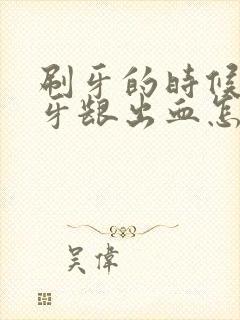 刷牙的时候
牙龈出血怎
吴偉